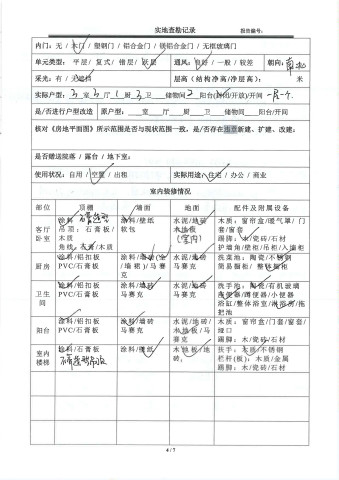 实地查勘记录 报告编号：
内门：无 / 木门 / 塑钢门 / 铝合金门 / 镁铝合金门 / 无框玻璃门
单元类型：平层 / 复式 / 错层 / 跃层 通风：良好 / 一般 / 较差 朝向：南北
采光：有 / 无遮挡 层高（结构净高/净层高）： 米
实际户型：3 室 3 厅 1 厨 3 卫 储物间 2 阳台(封闭/开放)/开间
是/否进行户型改造 原户型： 室 厅 厨 卫 储物间 阳台/开间
核对《房地产平面图》所示范围是否与现状范围一致，是/否存在新建、扩建、改建：
是否赠送院落 / 露台 / 地下室：
使用状况：自用 / 空置 / 出租 实际用途：住宅 / 办公 / 商业
室内装修情况
部位 顶棚 墙面 地面 配件及附属设备
客厅 涂料 涂料/壁纸 水泥/地砖 木质：窗帘盒/暖气罩/门
卧室 吊顶：石膏板/ 软包 木地板 套/窗套
木质 (室内) 踢脚：木/瓷砖/石材
角线：木质 护墙角/壁柜/吊柜/入墙柜
厨房 涂料/铝扣板 水泥/地砖 洗菜池：陶瓷/不锈钢
PVC/石膏板 马赛克 简易橱柜/整体橱柜
卫生 涂料/铝扣板 涂料/墙砖 水泥/地砖/ 洗手池：陶瓷/有机玻璃
间 PVC/石膏板 马赛克 马赛克 坐便器/蹲便器/小便器
浴缸/整体浴室/淋浴/拖
把池
阳台 涂料/铝扣板 涂料/墙砖 水泥/地砖/ 木质：窗帘盒/门套/窗套/
PVC/石膏板 马赛克 木地板/马 垭口
赛克 踢脚：木/瓷砖/石材
室内 涂料/石膏板 涂料/壁纸 木地板/地 扶手：木质/不锈钢
楼梯 砖 栏杆(板)：木质/金属
踢脚：木/瓷砖/石材
4 / 7